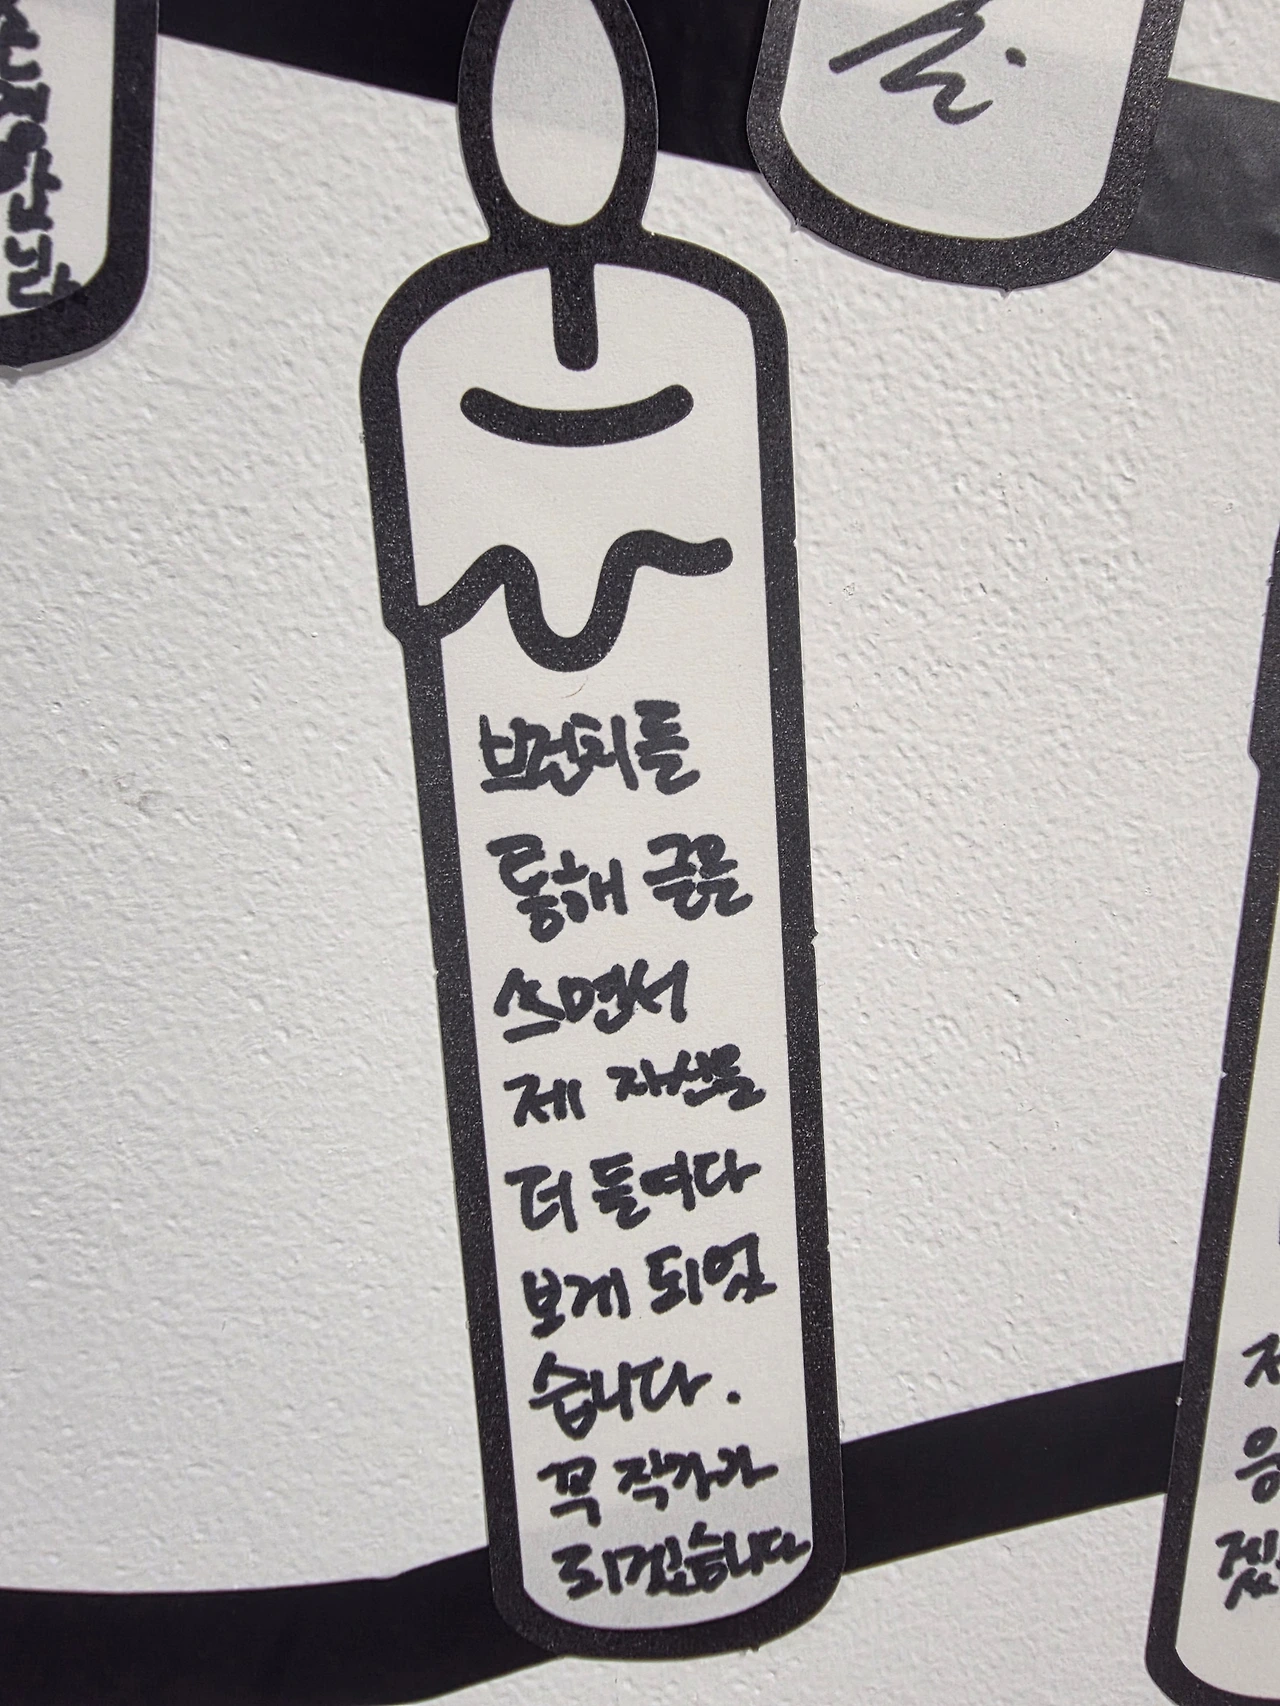 브런치를
통해 글을
쓰면서
제 자신을
더 들여다
보게 되었
습니다.
꼭 작가가
되겠습니다